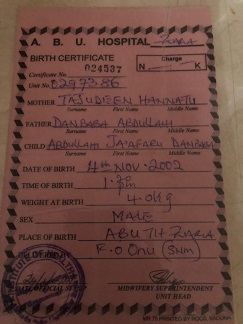 A. B. U. HOSPITAL ZARIA
BIRTH CERTIFICATE
Charge
N K
Certificate No. 024537
Unit No 0297386
MOTHER TAJUDEEN HANNATU
Surname First Name Middle Name
FATHER DANBABA ABDULLAHI
Surname First Name Middle Name
CHILD ABDULLAHI JA'AFARU DANBABA
Surname First Name Middle Name
DATE OF BIRTH 4TH NOV. 2002
TIME OF BIRTH
WEIGHT AT BIRTH 4.0kg
SEX MALE
PLACE OF BIRTH ABUTH ZARIA
F. O Onu (SNM)
MIDWIFERY SUPERINTENDENT
UNIT HEAD